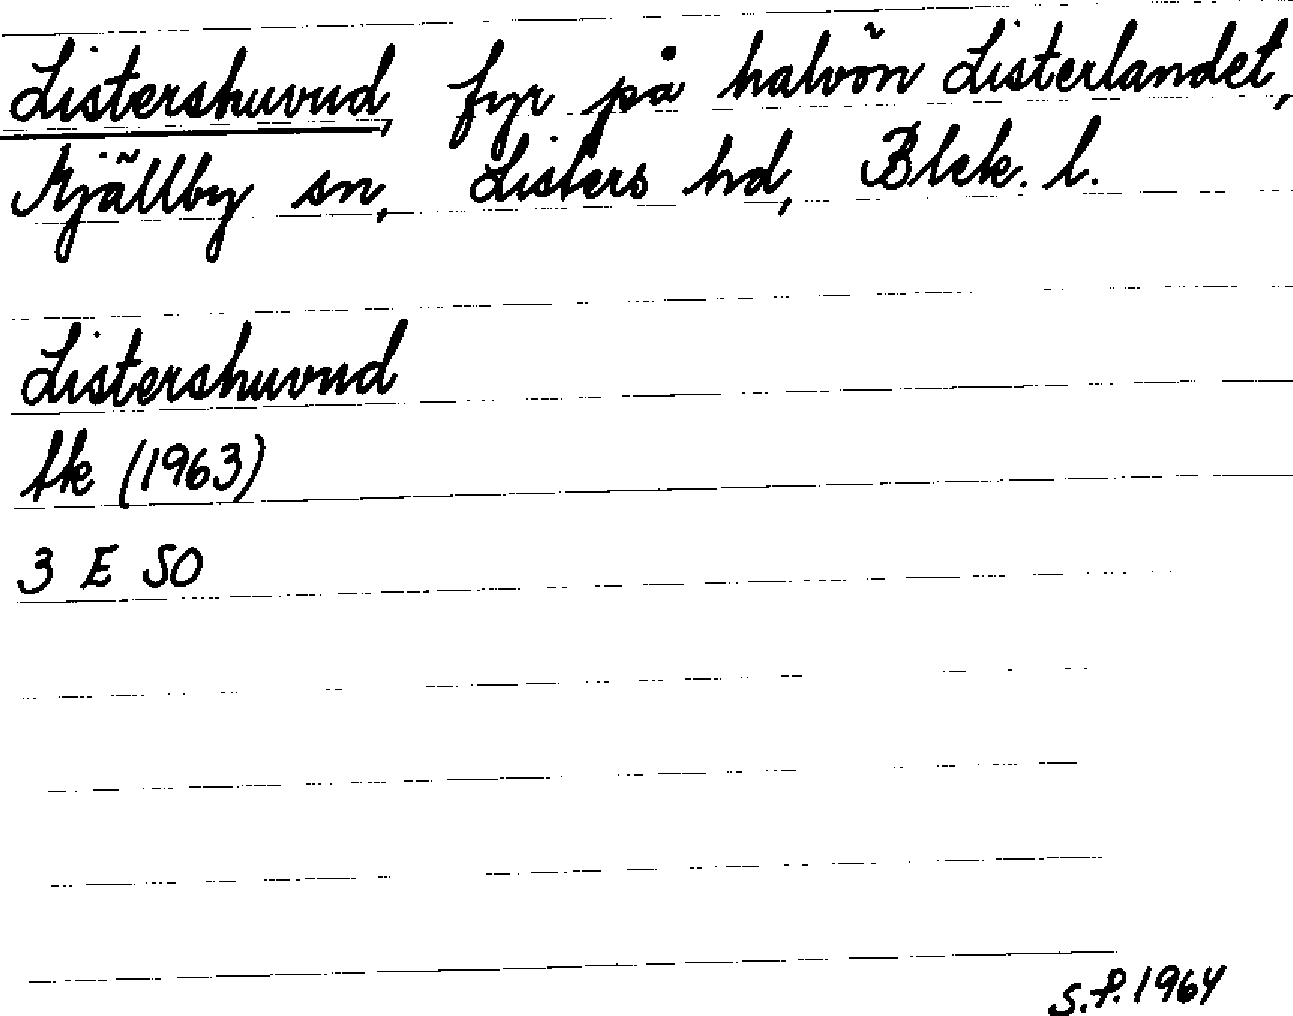 Listershuvud, fyr på halvön Listerlandet,
Mjällby sn, Listers hd, Blek. l.
Listershuvud
fk (1963)
3 E SO
S.P. 1964